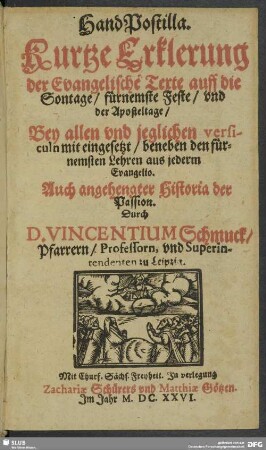 HandPostilla.
Kurtze Erklerung
der Evangelischẽ Texte auff die
Sontage/ fürnemste Feste/ vnd
der Aposteltage/
Bey allen vnd jeglichen versi-
culn mit eingesetzt/ beneben den für-
nemsten Lehren aus jederm
Evangelio.
Auch angehengter Historia der
Passion.
Durch
D. VINCENTIUM Schmuck/
Pfarrern/ Professorn, vnd Superin-
tendenten zu Leipzig.
Mit Churf. Sächs. Freyheit. In verlegung
Zachariæ Schürers vnd Matthiæ Götzen.
Im Jahr M. DC. XXVI.
SLUB
DFG